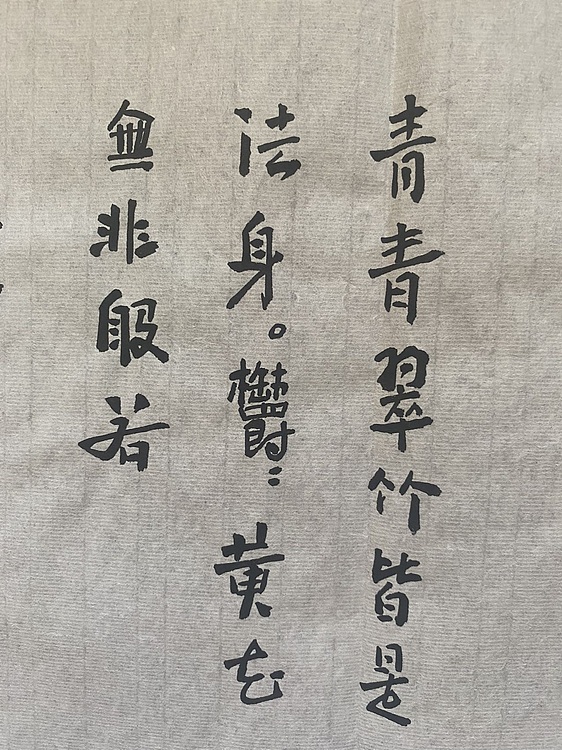 青青翠竹皆是
法身。欝〻黃花
無非般若